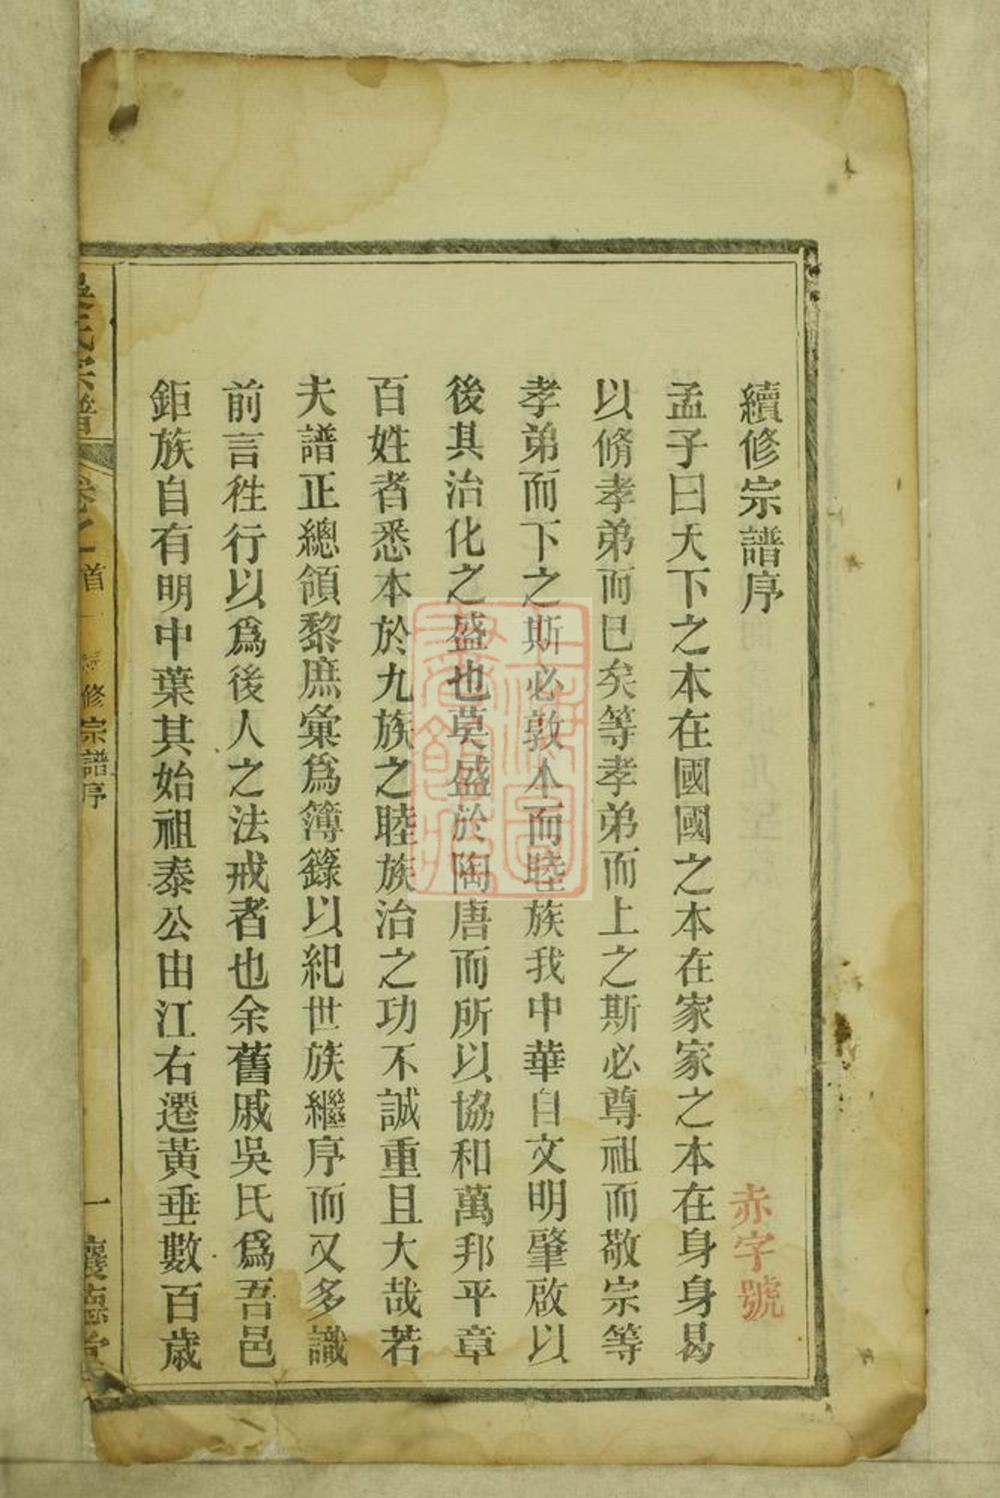 續修宗譜序
赤字號
孟子曰天下之本在國國之本在家家之本在身身曷
以脩孝弟而已矣等孝弟而上之斯必尊祖而敬宗等
孝弟而下之斯必敦本而睦族我中華自文明肇啟以
後其治化之盛也莫盛於陶唐而所以協和萬邦平章
百姓者悉本於九族之睦族治之功不誠重且大哉若
夫譜正總領黎庶彙爲簿錄以紀世族繼序而又多識
前言徃行以爲後人之法戒者也余舊戚吳氏爲吾邑
鉅族自有明中葉其始祖泰公由江右遷黃垂數百歲
吳氏宗譜 卷之首一 續修宗譜序 一 讓德堂
上海圖書館藏